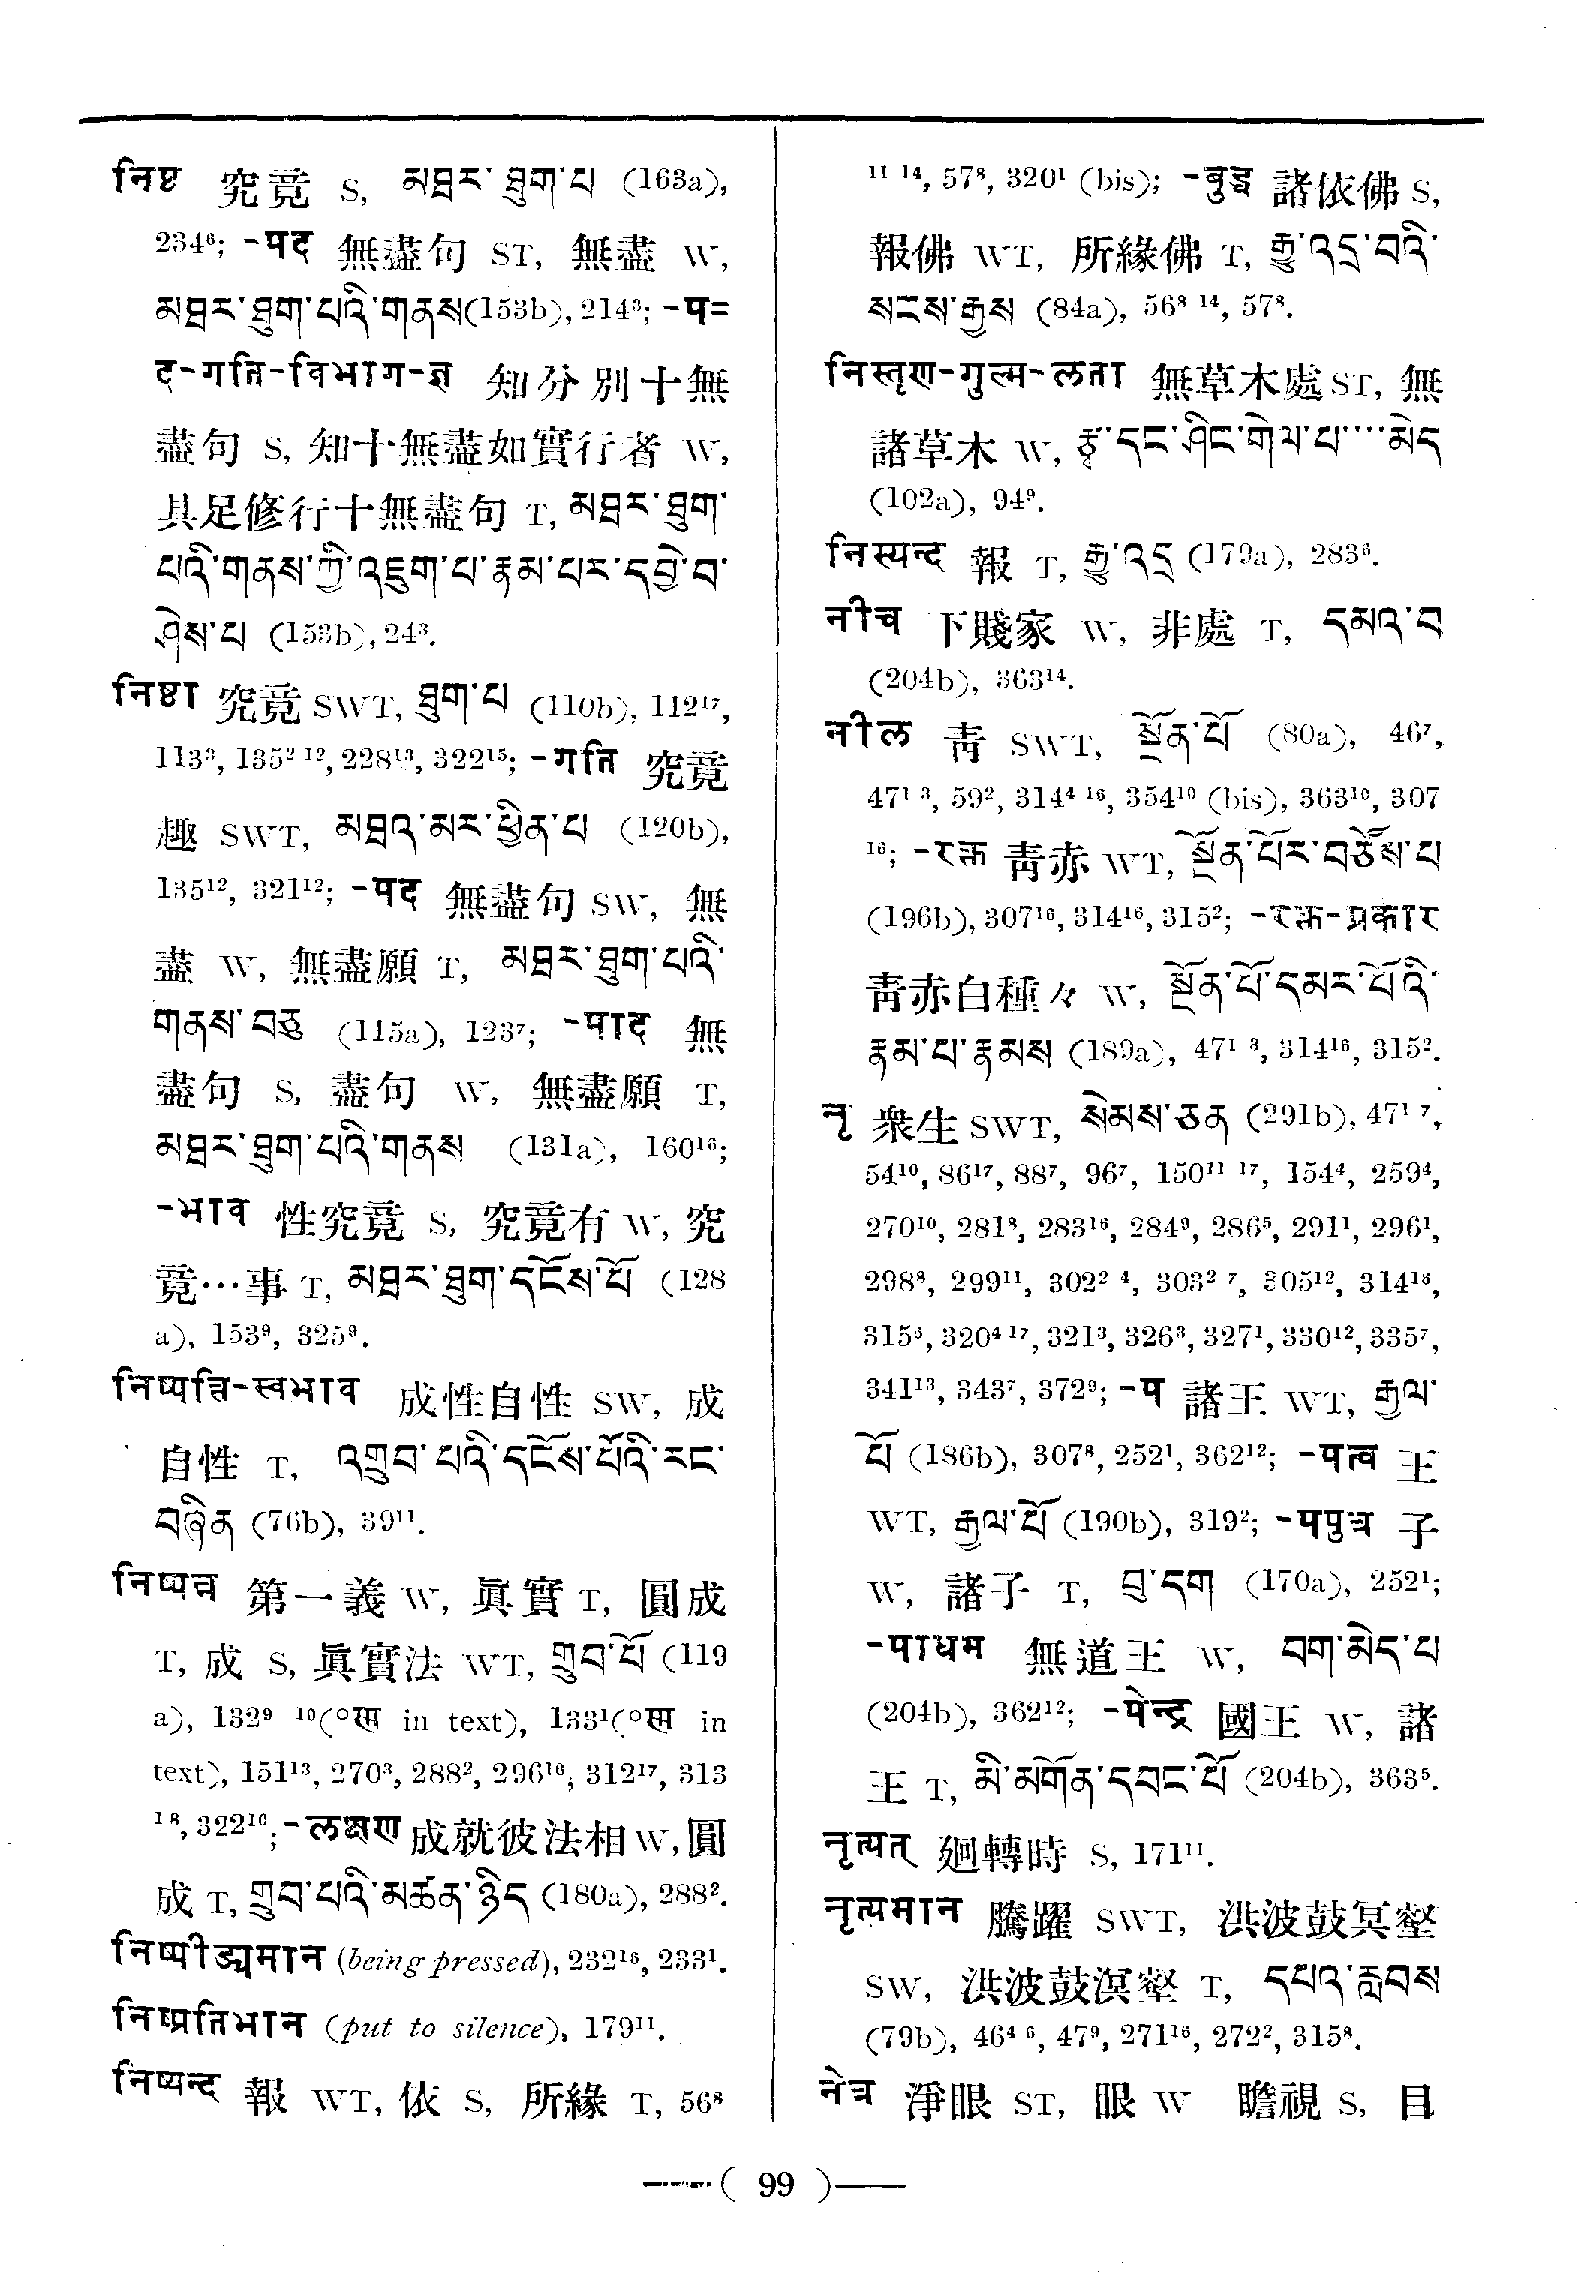 निष्ठ 究竟 S, མཐར་ ཐུག་པ (163a),
234⁶; -पद 無盡句 ST, 無盡 W,
མཐར་ཐུག་པའི་གནས(153b), 214³; -प=
द-गति-विभाग-ज्ञ 知分別十無
盡句 S, 知十無盡如實行者 W,
具足修行十無盡句 T, མཐར་ཐུག་
པའི་གནས་ཀྱི་འཇུག་པ་རྣམ་པར་དབྱེ་བ་
ཤེས་པ (153b), 24³.
निष्ठा 究竟 SWT, ཐུག་པ (110b), 112¹⁷,
113³, 135² ¹², 228¹³, 322¹⁵; -गति 究竟
趣 SWT, མཐའ་མར་ཕྱིན་པ (120b),
135¹², 321¹²; -पद 無盡句 SW, 無
盡 W, 無盡願 T, མཐར་ཐུག་པའི་
གནས་བཅུ (115a), 123⁷; -पाद 無
盡句 S, 盡句 W, 無盡願 T,
མཐར་ཐུག་པའི་གནས (131a), 160¹⁶;
-भाव 性究竟 S, 究竟有 W, 究
竟…事 T, མཐར་ཐུག་དངོས་པོ (128
a), 153⁹, 325⁹.
निष्पत्ति-स्वभाव 成性自性 SW, 成
自性 T, འགྲུབ་པའི་དངོས་པོའི་རང་
བཞིན (76b), 39¹¹.
निष्पन्न 第一義 W, 眞實 T, 圓成
T, 成 S, 眞實法 WT, གྲུབ་པོ (119
a), 132⁹ ¹⁰(°त्म in text), 133¹(°त्म in
text), 151¹³, 270³, 288², 296¹⁶, 312¹⁷, 313
¹⁸, 322¹⁶; -लक्षण 成就彼法相 W, 圓
成 T, གྲུབ་པའི་མཚན་ཉིད (180a), 288².
निष्पीड्यमान (being pressed), 232¹⁶, 233¹.
निष्प्रतिभान (put to silence), 179¹¹.
निष्यन्द 報 WT, 依 S, 所緣 T, 56⁸
¹¹ ¹⁴, 57⁸, 320¹ (bis); -बुद्ध 諸依佛 S,
報佛 WT, 所緣佛 T, རྒྱུ་འདྲ་བའི་
སངས་རྒྱས (84a), 56⁸ ¹⁴, 57⁸.
निस्तृण-गुल्म-लता 無草木處 ST, 無
諸草木 W, རྩྭ་དང་ཤིང་གེལ་པ་་་་མེད
(102a), 94⁹.
निस्यन्द 報 T, རྒྱུ་འདྲ (179a), 283⁶.
नीच 下賤家 W, 非處 T, དམའ་བ
(204b), 363¹⁴.
नील 靑 SWT, སྔོན་པོ (80a), 46⁷,
47¹ ³, 59², 314⁴ ¹⁶, 354¹⁰ (bis), 363¹⁰, 307
¹⁶; -रक्त 靑赤 WT, སྔོན་པོར་བཙོས་པ
(196b), 307¹⁶, 314¹⁶, 315²; -रक्त-प्रकार
靑赤白種々 W, སྔོན་པོ་དམར་པོའི་
རྣམ་པ་རྣམས (189a), 47¹ ³, 314¹⁶, 315².
नृ 衆生 SWT, སེམས་ཅན (291b), 47¹ ⁷,
54¹⁰, 86¹⁷, 88⁷, 96⁷, 150¹¹ ¹⁷, 154⁴, 259⁴,
270¹⁰, 281⁸, 283¹⁶, 284⁹, 286⁵, 291¹, 296¹,
298⁸, 299¹¹, 302² ⁴, 303² ⁷, 305¹², 314¹⁶,
315⁵, 320⁴ ¹⁷, 321³, 326³, 327¹, 330¹², 335⁷,
341¹³, 343⁷, 372⁹; -प 諸王 WT, རྒྱལ་
པོ (186b), 307⁸, 252¹, 362¹²; -पत्व 王
WT, རྒྱལ་པོ (190b), 319²; -पपुत्र 子
W, 諸子 T, བུ་དག (170a), 252¹;
-पाधम 無道王 W, བག་མེད་པ
(204b), 362¹²; -पेन्द्र 國王 W, 諸
王 T, མི་མགོན་དབང་པོ (204b), 363⁵.
नृत्यत् 廻轉時 S, 171¹¹.
नृत्यमान 騰躍 SWT, 洪波鼓冥壑
SW, 洪波鼓溟壑 T, དཔའ་རླབས
(79b), 46⁴ ⁶, 47⁹, 271¹⁶, 272², 315⁸.
नेत्र 淨眼 ST, 眼 W 瞻視 S, 目
( 99 )